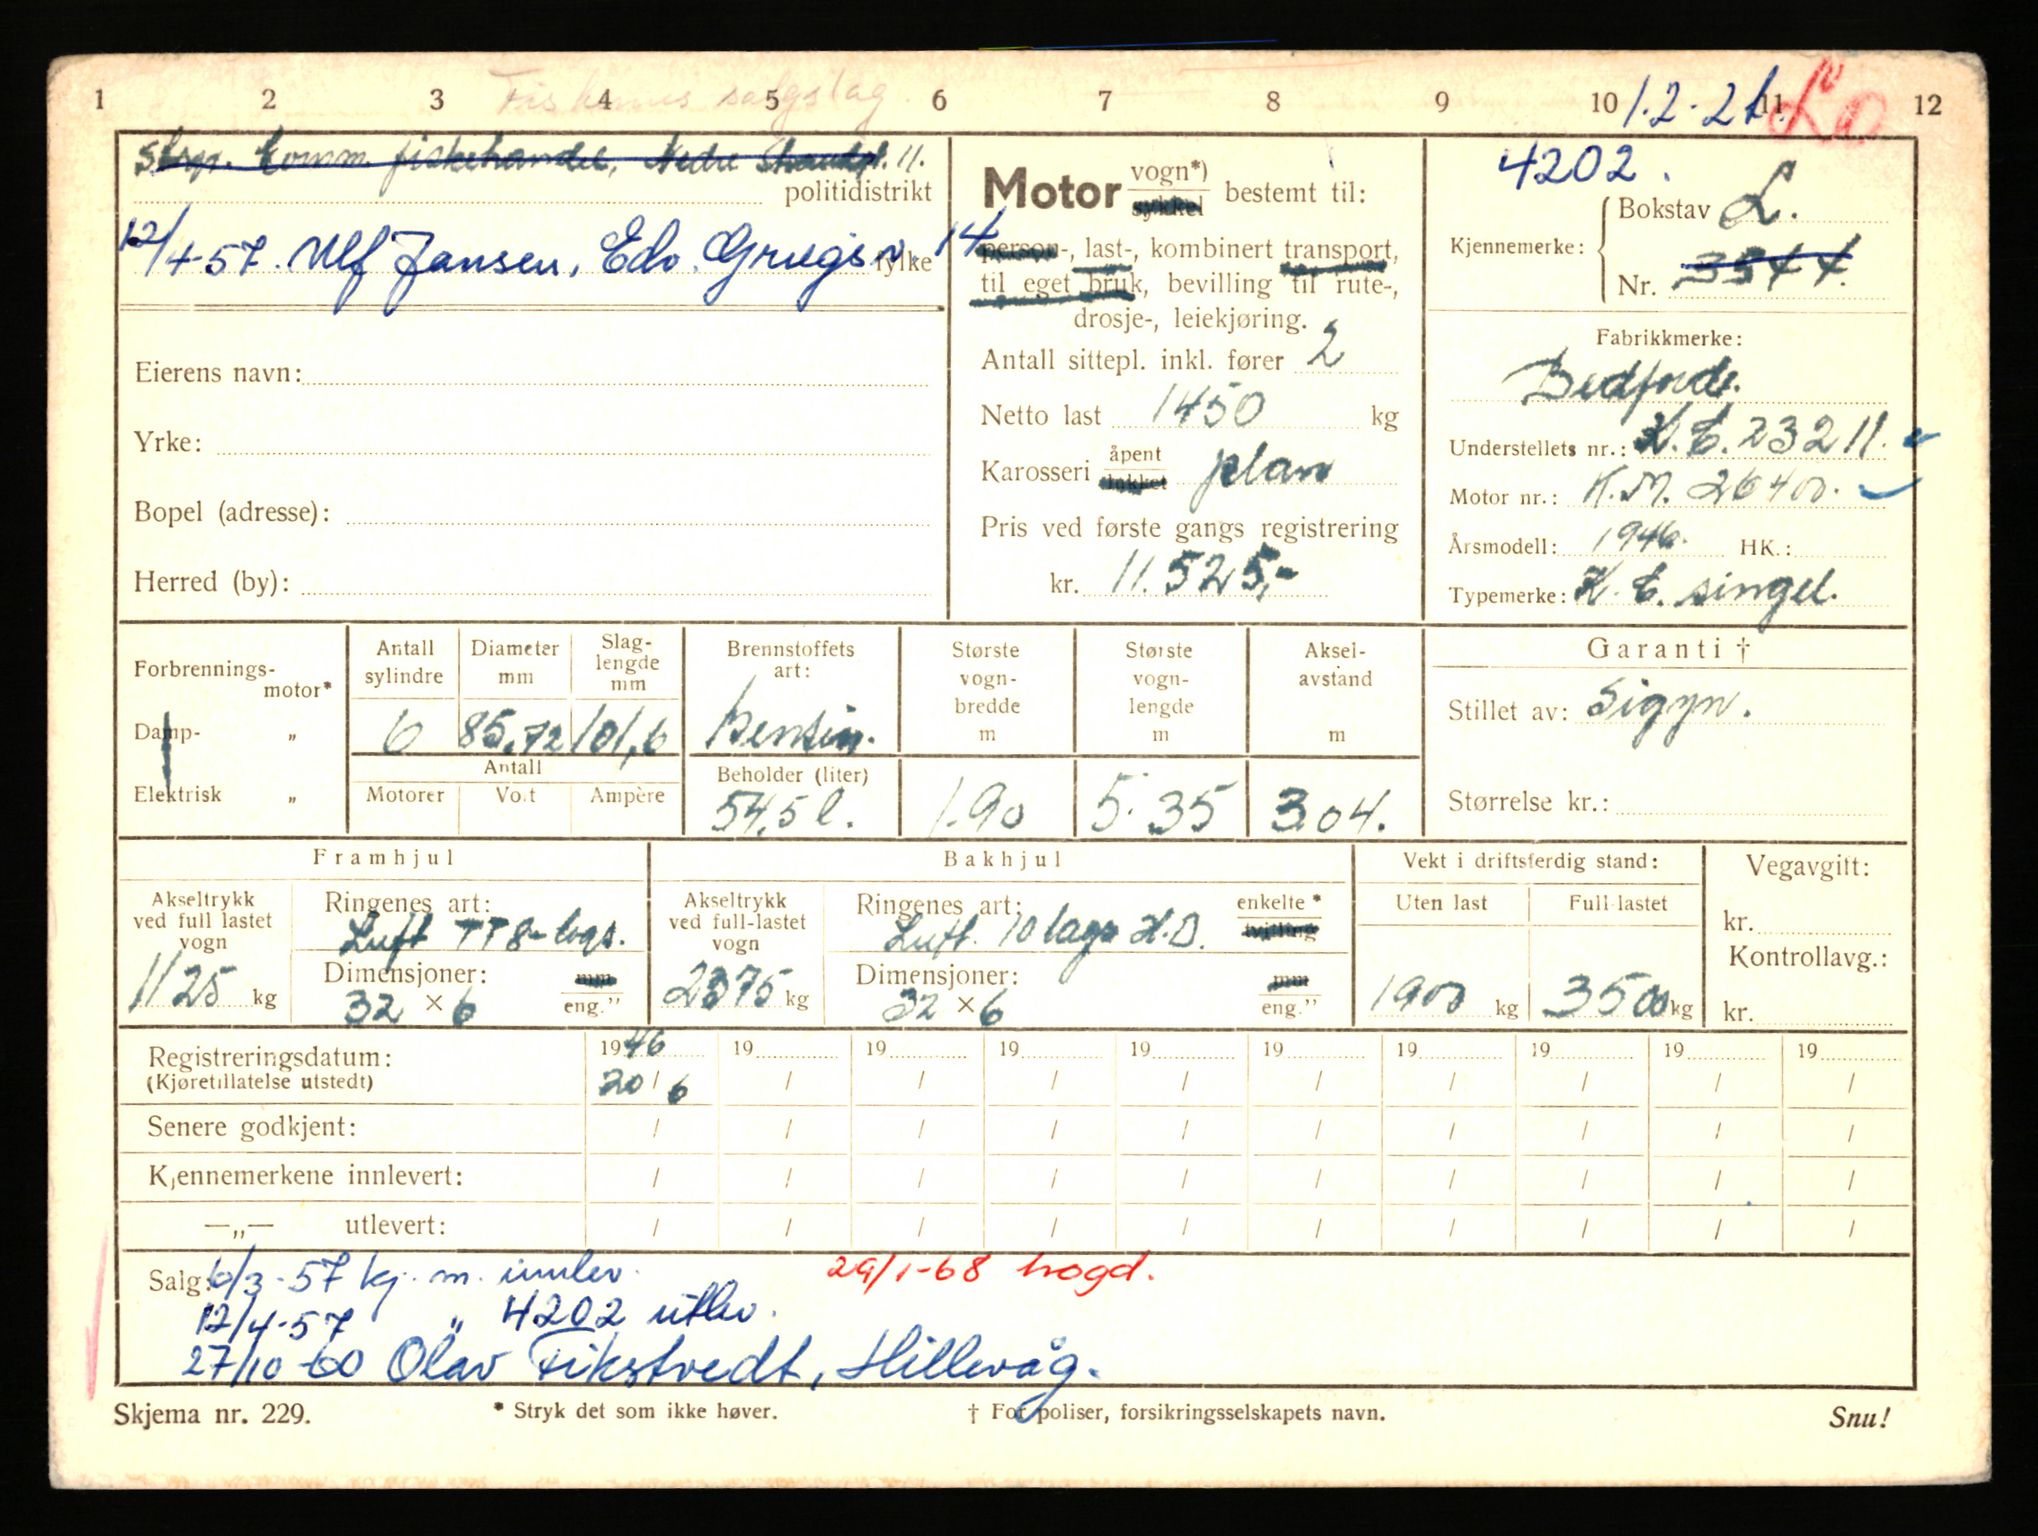 1 2 3 4 5 6 7 8 9 10 11 12
Fiskernes salgslag
1.2-2t.
Stvgr. Komm. fiskehandel, Nedre Strandgt. 11.
politidistrikt
12/4-57. Ulf Jansen, Edv. Griegs v. 14
fylke
Eierens navn:
Yrke:
Bopel (adresse):
Herred (by):
Motor vogn*) sykkel bestemt til:
person-, last-, kombinert transport,
til eget bruk, bevilling til rute-,
drosje-, leiekjøring.
Antall sittepl. inkl. fører 2
Netto last 1450 kg
Karosseri åpent lukket plan
Pris ved første gangs registrering
kr. 11.525,-
4202.
Kjennemerke: Bokstav L.
Nr. 3544.
Fabrikkmerke:
Bedford.
Understellets nr.: K.C. 23211.
Motor nr.: K.M. 26400.
Årsmodell: 1946. HK.:
Typemerke: K.C. singel.
Forbrennings-motor*
Damp- „
Elektrisk „
Antall sylindre 6
Diameter mm 85,72
Slag-lengde mm 101,6
Antall
Motorer Volt Ampère
Brennstoffets art: Bensin.
Beholder (liter) 54,5 l.
Største vogn-bredde m 1.90
Største vogn-lengde m 5.35
Aksel-avstand m 3.04.
Garanti †
Stillet av: Sigyn.
Størrelse kr.:
Framhjul
Akseltrykk ved full lastet vogn 1125 kg
Ringenes art: Luft TT 8-lags.
Dimensjoner: 32 × 6 mm eng."
Bakhjul
Akseltrykk ved full-lastet vogn 2375 kg
Ringenes art: Luft. 10 lags H.D. enkelte * tvilling
Dimensjoner: 32 × 6 mm eng."
Vekt i driftsferdig stand:
Uten last 1900 kg
Full-lastet 3500 kg
Vegavgift:
kr.
Kontrollavg.:
kr.
Registreringsdatum: 1946 19 19 19 19 19 19 19 19 19
(Kjøretillatelse utstedt) 20/6 / / / / / / / / /
Senere godkjent: / / / / / / / / / /
Kjennemerkene innlevert: / / / / / / / / / /
—„— utlevert: / / / / / / / / / /
Salg: 6/3-57 kj. m. innlev. 29/1-68 hogd.
12/4-57 „ 4202 utlev.
27/10-60 Olav Fikstvedt, Hillevåg.
Skjema nr. 229. * Stryk det som ikke høver. † For poliser, forsikringsselskapets navn. Snu!